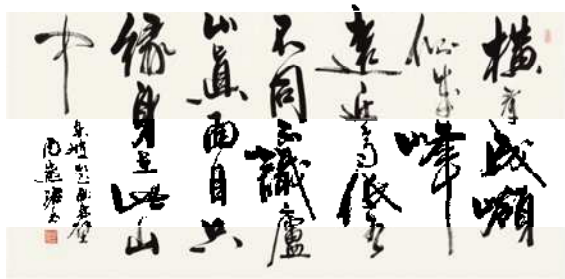 橫看成嶺
側成峰
遠近高低各
不同不識廬
山真面目只
緣身在此山
中
東坡題西林壁